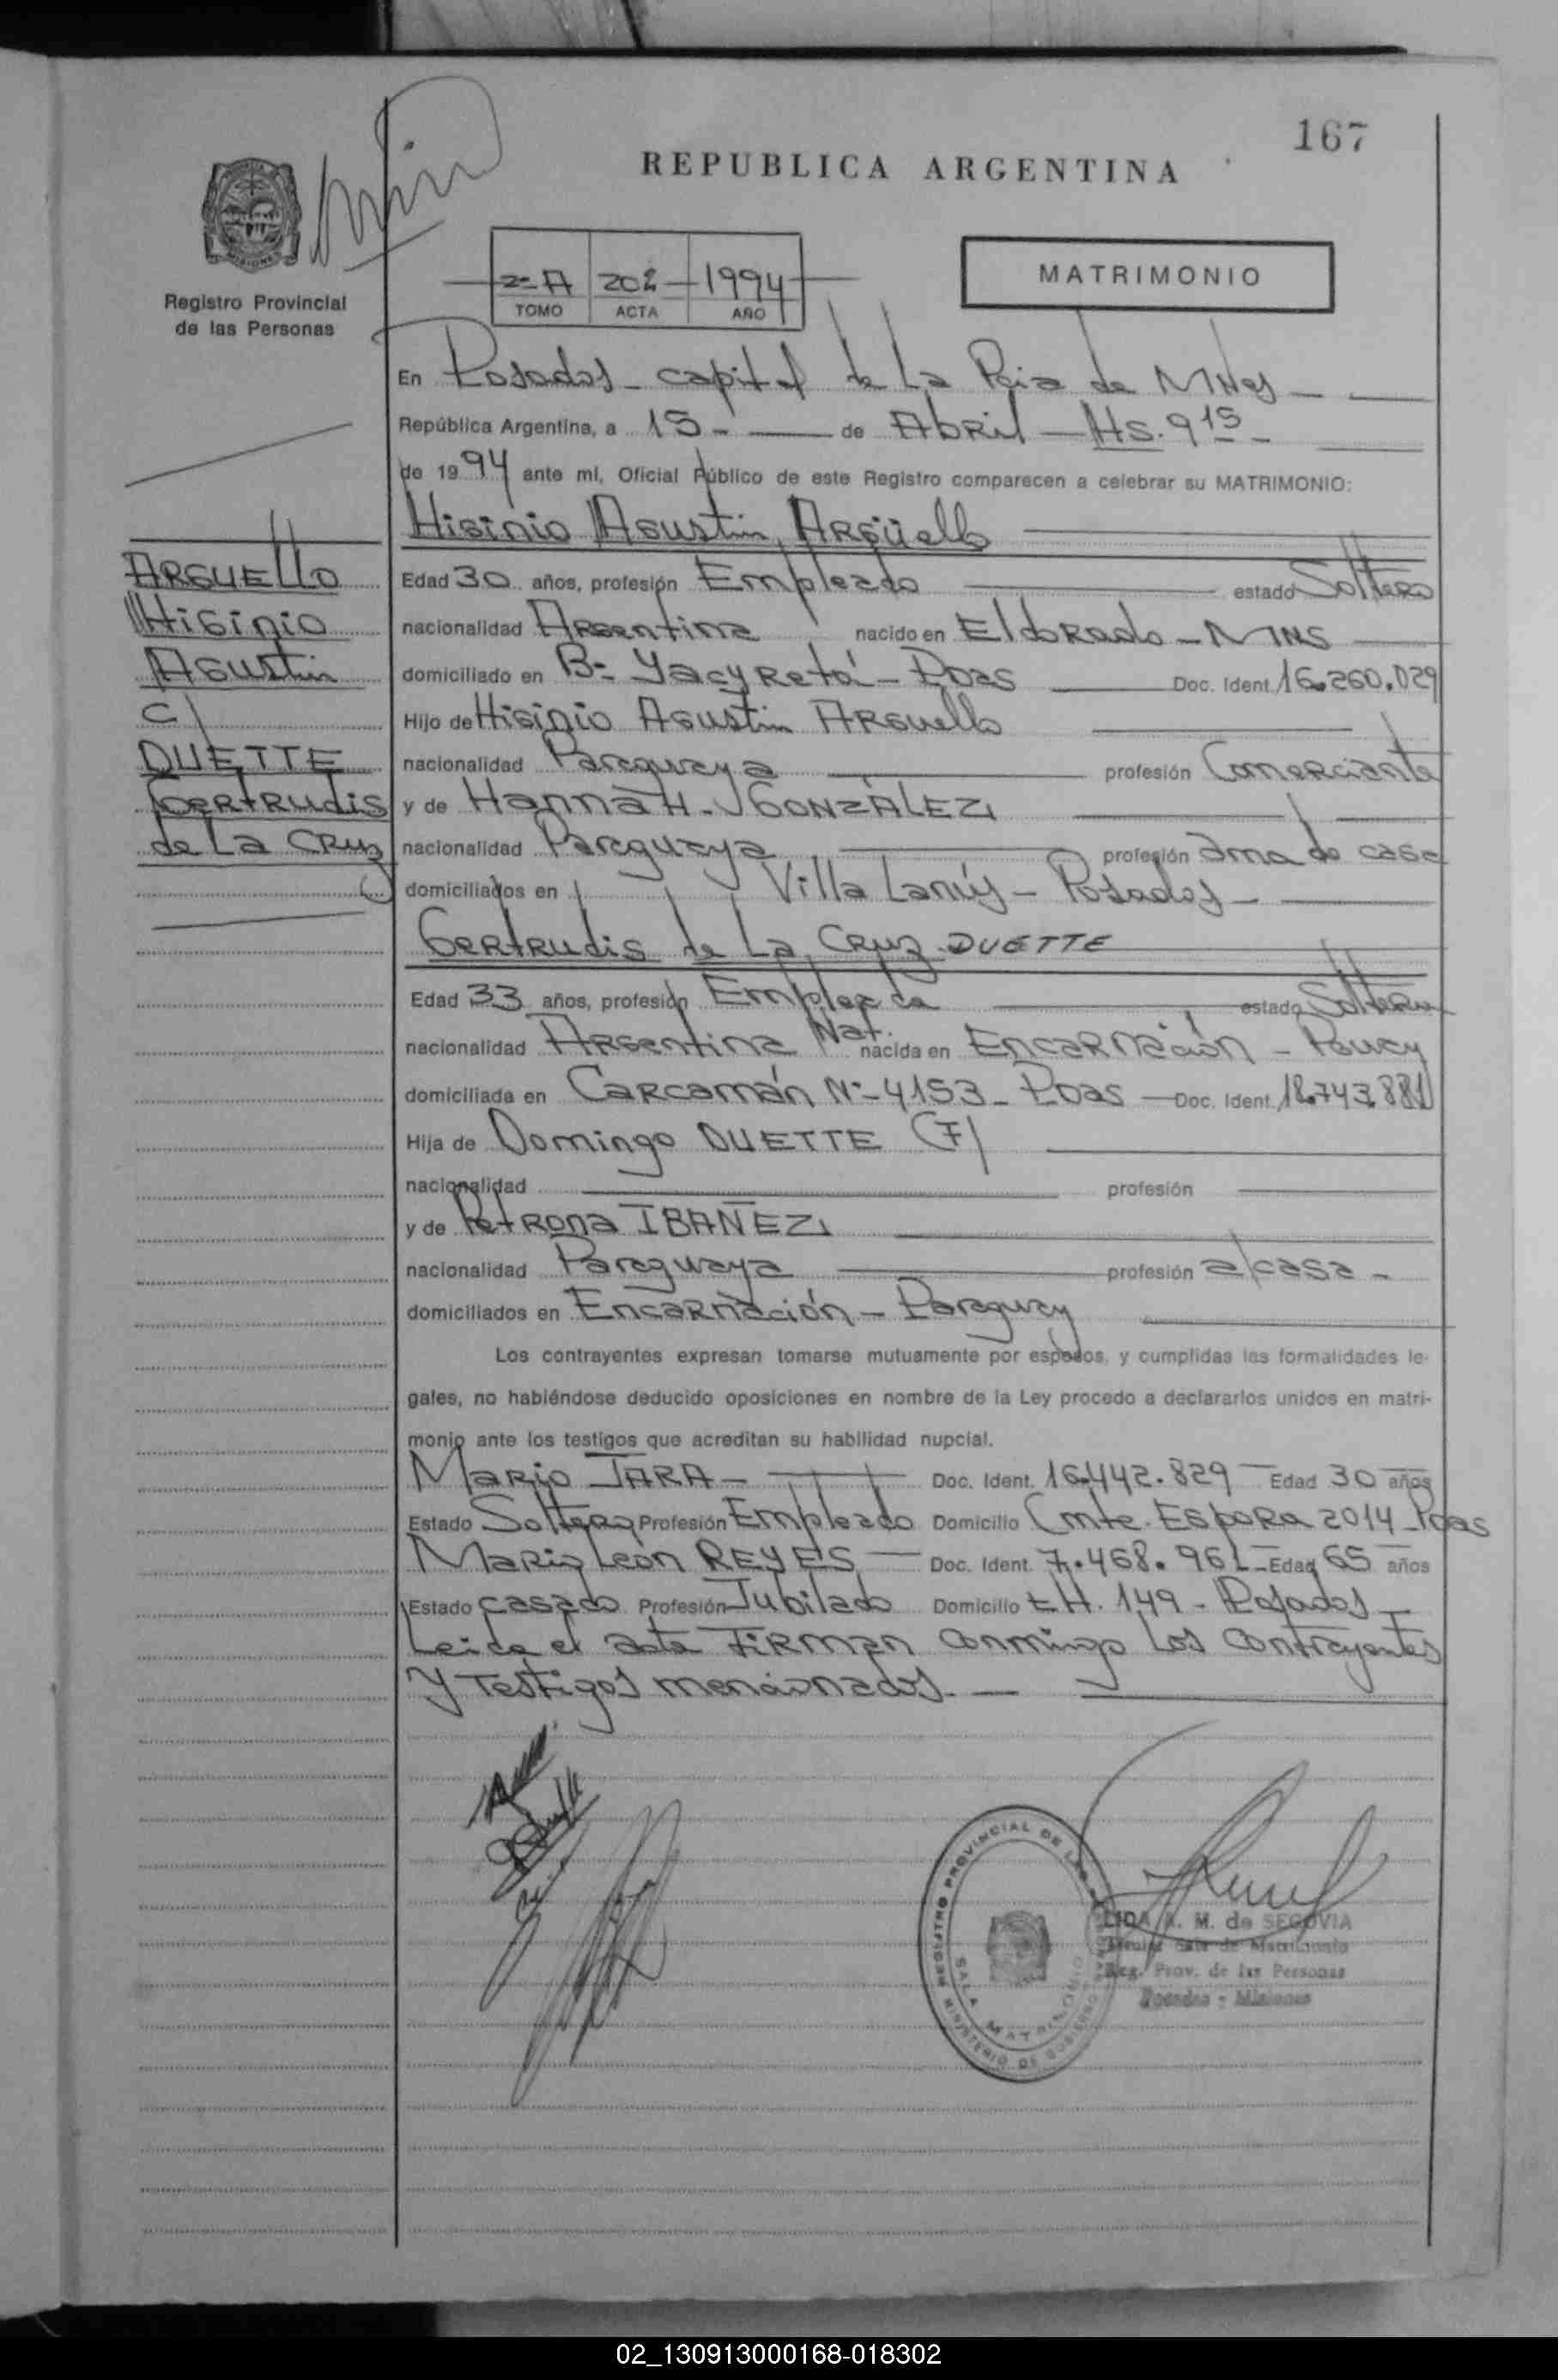 167
REPUBLICA ARGENTINA
Registro Provincial
de las Personas
2-A 202 1994
TOMO ACTA AÑO
MATRIMONIO
En Posadas - capital de La Pcia de Mnes -
República Argentina, a 15 - de Abril - Hs. 9 15 -
de 1994 ante mí, Oficial Público de este Registro comparecen a celebrar su MATRIMONIO:
Higinio Agustin Argüello
ARGUELLO
Higinio
Agustin
C/
DUETTE
Gertrudis
de La Cruz
Edad 30 años, profesión Empleado estado Soltero
nacionalidad Argentina nacido en Eldorado - MNS
domiciliado en B- Yacyretá - Pdas Doc. Ident. 16.260.029
Hijo de Higinio Agustin Arguello
nacionalidad Paraguaya profesión Comerciante
y de Hanna H. GONZÁLEZ
nacionalidad Paraguaya profesión ama de casa
domiciliados en Villa Lanús - Posadas -
Gertrudis de La Cruz DUETTE
Edad 33 años, profesión Empleada estado Soltera
nacionalidad Argentina Nat. nacida en Encarnación - Pguay
domiciliada en Carcamán N- 4153 - Pdas Doc. Ident. 18.743.881
Hija de Domingo DUETTE (F)
nacionalidad profesión
y de Petrona IBAÑEZ
nacionalidad Paraguaya profesión a/casa -
domiciliados en Encarnación - Paraguay
Los contrayentes expresan tomarse mutuamente por esposos, y cumplidas las formalidades le-
gales, no habiéndose deducido oposiciones en nombre de la Ley procedo a declararlos unidos en matri-
monio ante los testigos que acreditan su habilidad nupcial.
Mario JARA - Doc. Ident. 16.442.829 Edad 30 años
Estado Soltero Profesión Empleado Domicilio Cmte. Espora 2014 - Pdas
Mario León REYES Doc. Ident. 7.468.961 - Edad 65 años
Estado casado Profesión Jubilado Domicilio H. 149 - Posados
Leida el acta FIRMAN conmingo Los contrayentes
y Testigos mencionados. -
REGISTRO PROVINCIAL DE LAS
SALA MATRIMONIO
MINISTERIO DE GOBIERNO
LIDA A. M. de SEGOVIA
Sala de Matrimonio
Reg. Prov. de las Personas
Posadas - Misiones
02_130913000168-018302